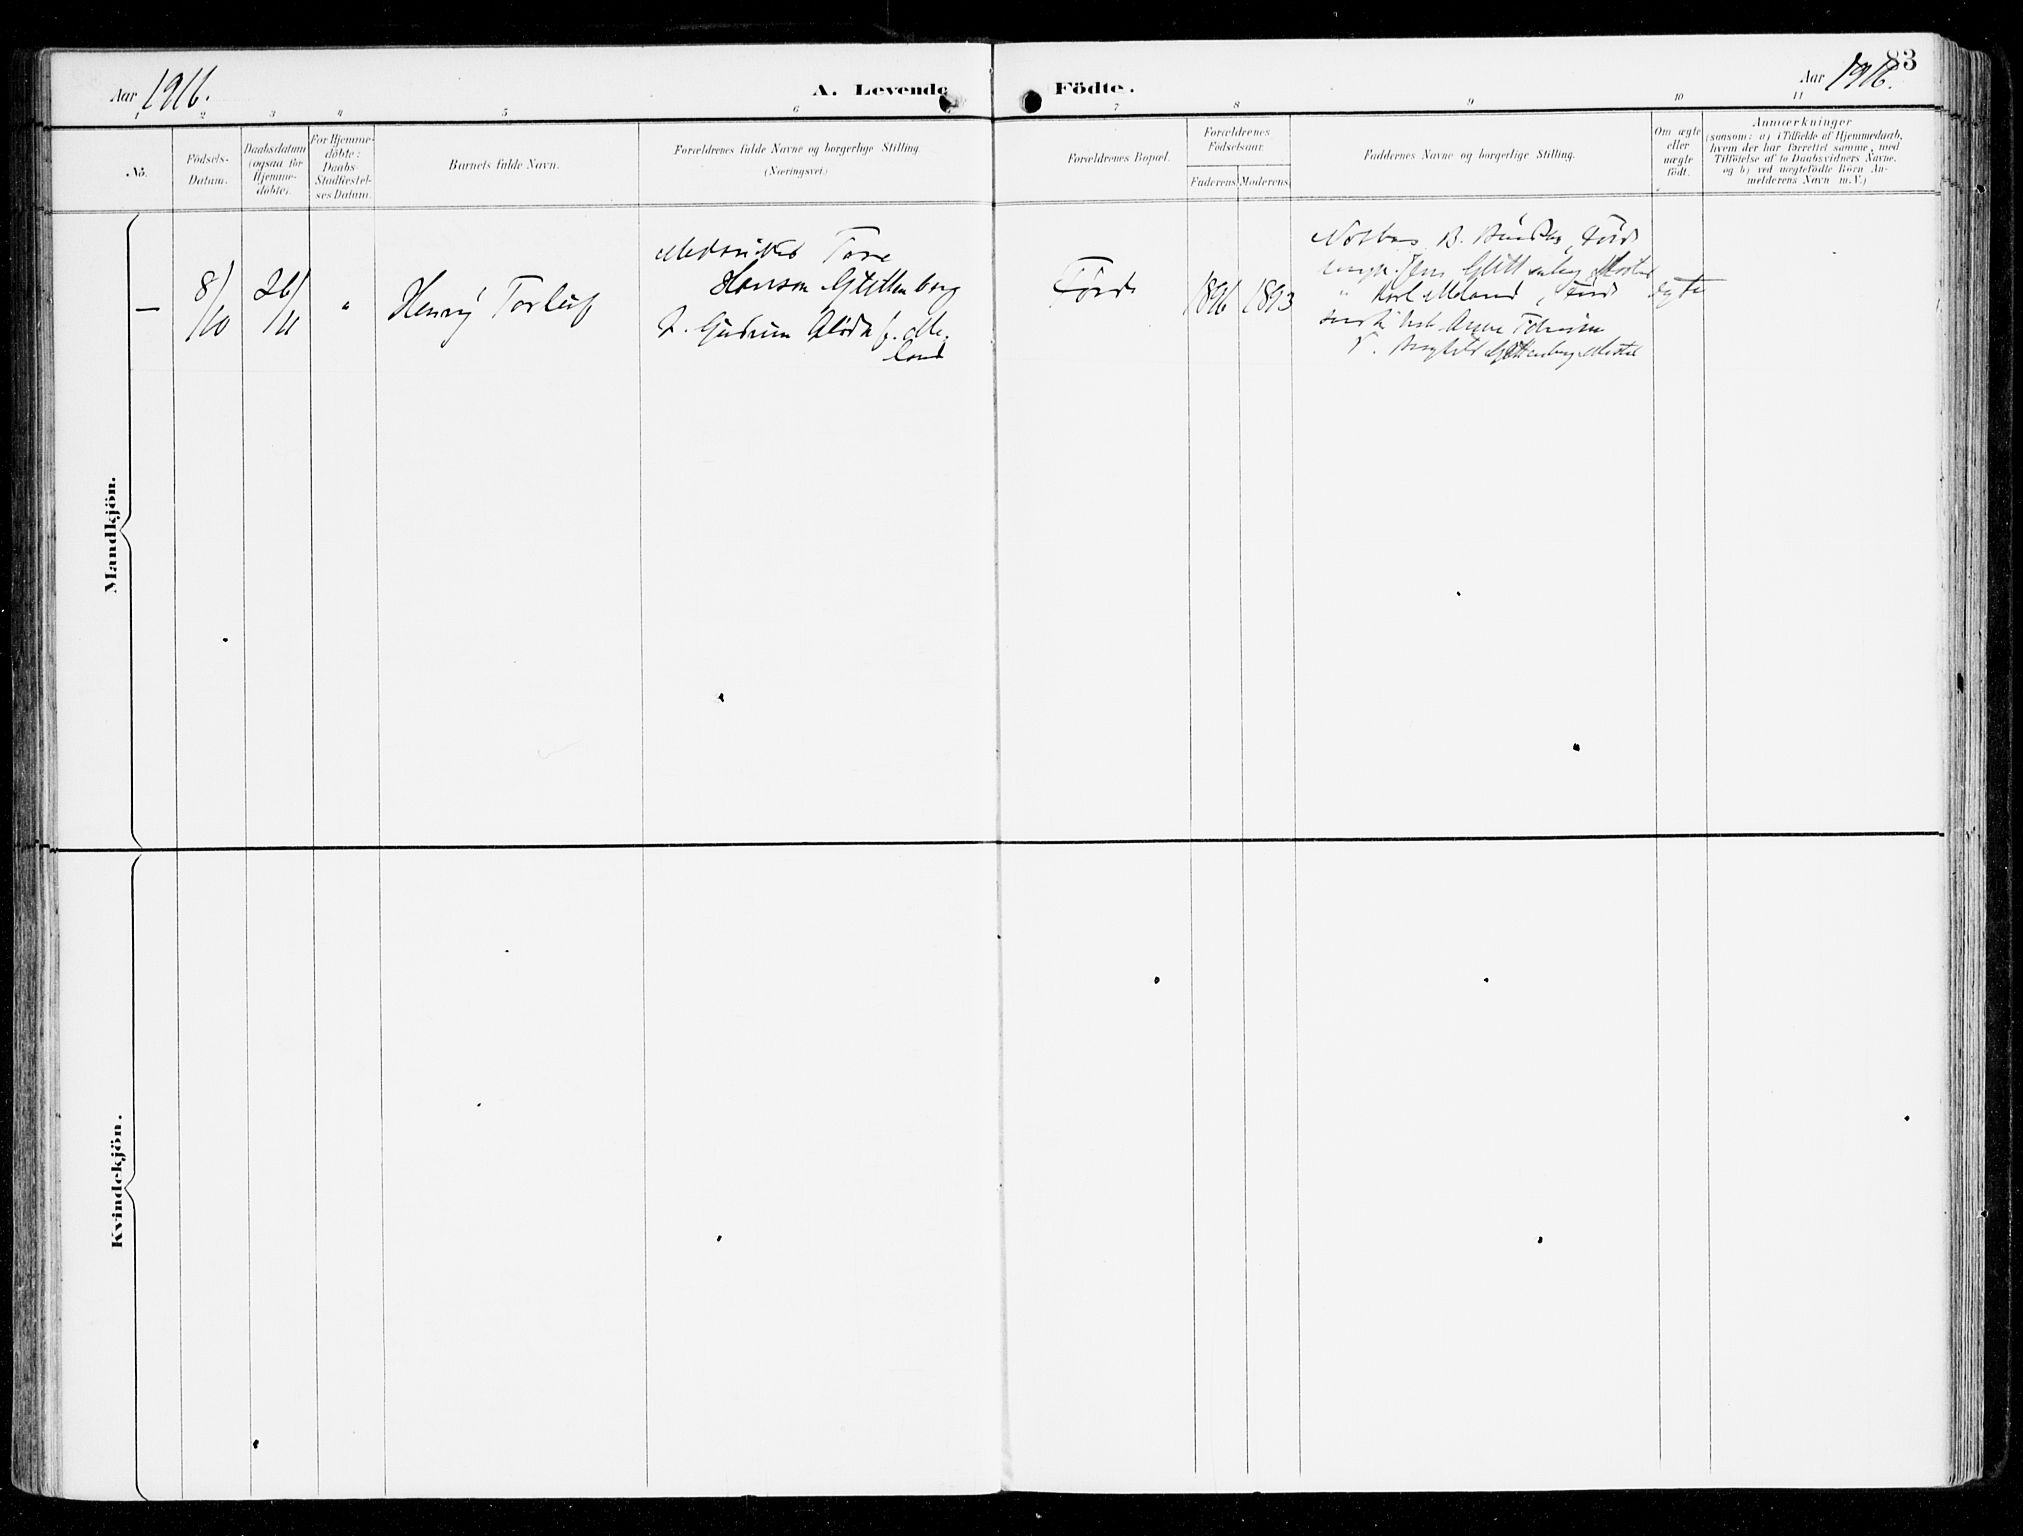 83
Aar 1916.
A. Levende Födte.
Aar 1916.
1 2 3 4 5 6 7 8 9 10 11
No.
Födsels-
Datum.
Daabsdatum
(ogsaa for
Hjemme-
döbte).
For Hjemme-
döbte:
Daabs-
Stadfæstel-
ses Datum.
Barnets fulde Navn.
Forældrenes fulde Navne og borgerlige Stilling.
(Næringsvei.)
Forældrenes Bopæl.
Forældrenes
Födselsaar.
Faderens.
Moderens.
Faddernes Navne og borgerlige Stilling.
Om ægte
eller
uægte
födt.
Anmærkninger
(saasom: a) i Tilfælde af Hjemmedaab,
hvem der har forrettet samme, med
Tilföielse af to Daabsvidners Navne.
og b) ved uægtefödte Börn An-
melderens Navn m.V.)
Mandkjön.
—
8/10
26/11
"
Henry Torleif
Tore
Hanson Gyttenborg
Gudrun f. Me-
land
Förde
1896
1893
B. Förde
ungk. Jens
" Karl Meland, Förde
Anna
ægte
Kvindekjön.